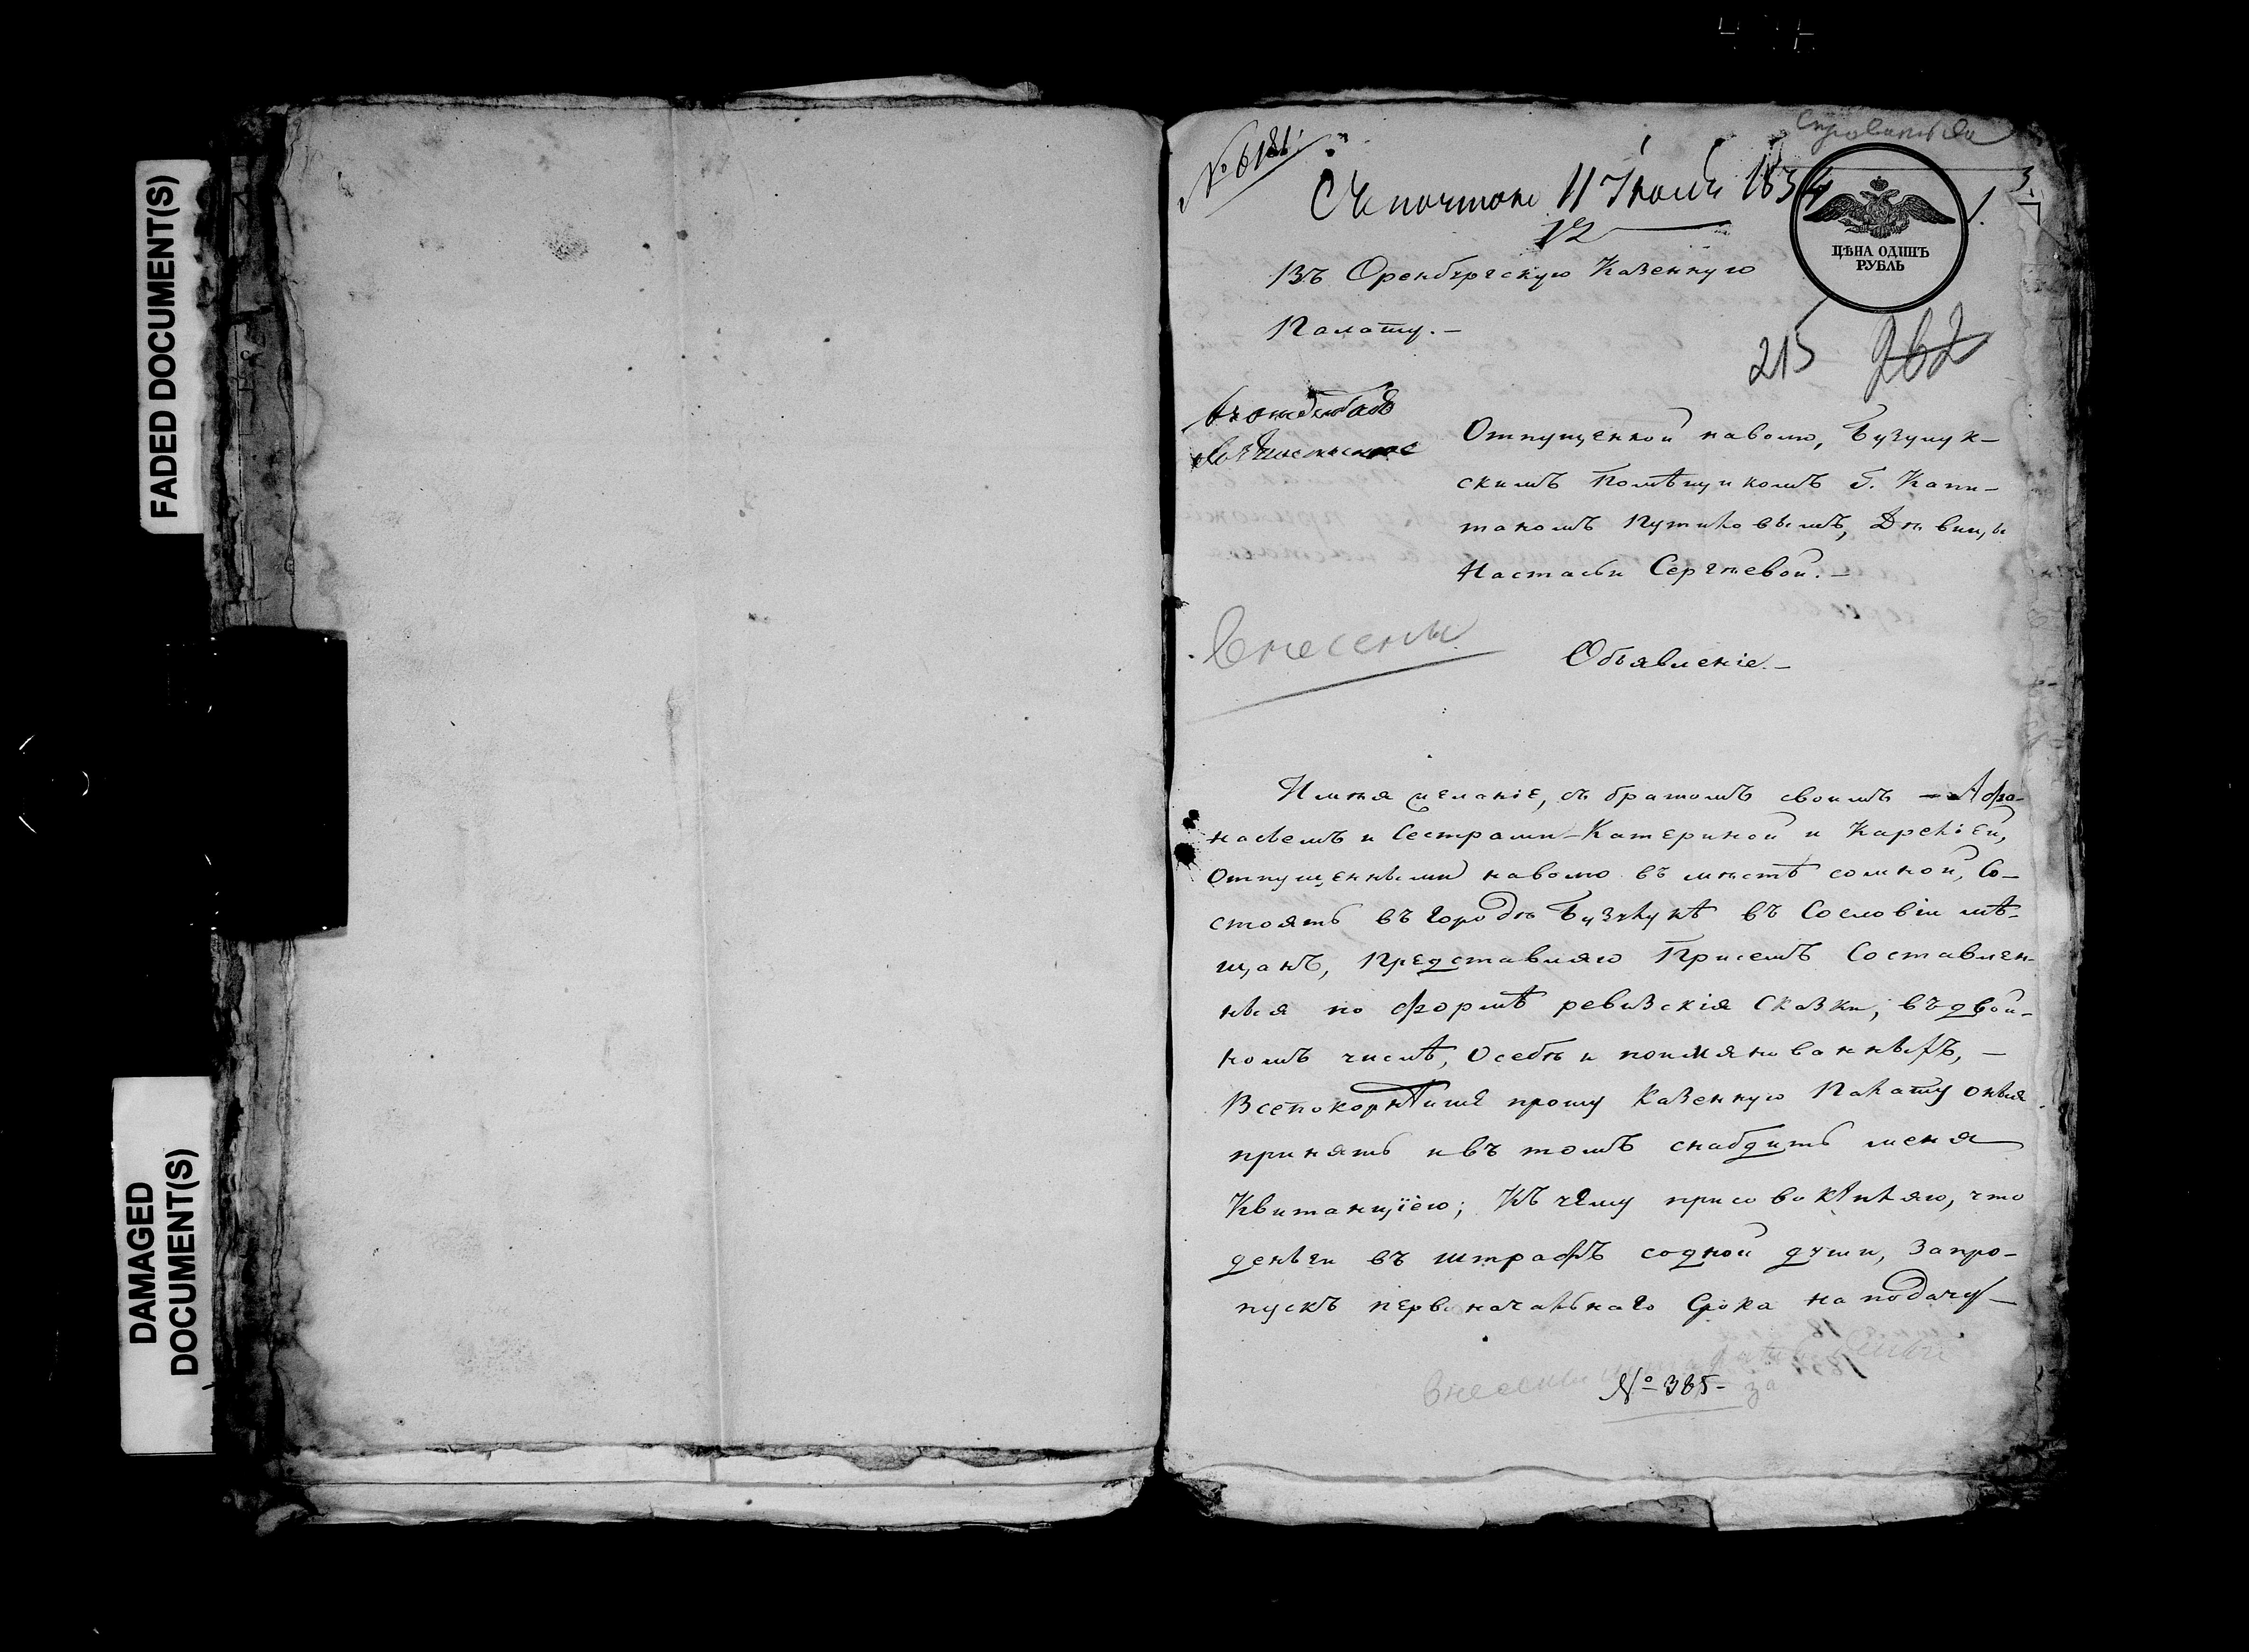 FADED DOCUMENT(S)
DAMAGED
DOCUMENT(S)
№ 6181
Съ почтою 11 Іюля 1834
12
ЦѢНА ОДИНЪ
РУБЛЬ
1.
Въ Оренбургскую Казенную
Палату. —
215 262
Отпущенной наволю, Бузулук-
скимъ Помѣщикомъ Г. Капи-
таномъ Путиловымъ, Дѣвицы
Настасьи Сергѣевой. —
Внесены
Объявленіе. —
Имѣя желаніе, съ братомъ своимъ — Афо-
насьемъ и Сестрами — Катериной и
Отпущенными наволю въ мѣстѣ сомной, Со-
стоять въ городѣ Бузулукѣ въ Сословіи мѣ-
щанъ, Представляю Присемъ Составлен-
ныя по формѣ ревизскія Сказки, въ двой-
номъ числѣ, о себѣ и поимянованныхъ, —
Всепокорнѣйше прошу Казенную Палату оныя
принять и въ томъ снабдить меня
Квитанціею; Къ чему присовокупляю, что
деньги въ штрафъ содной души, Запро-
пускъ первоначальнаго Срока на подачу —
внесены
№ 385 — за